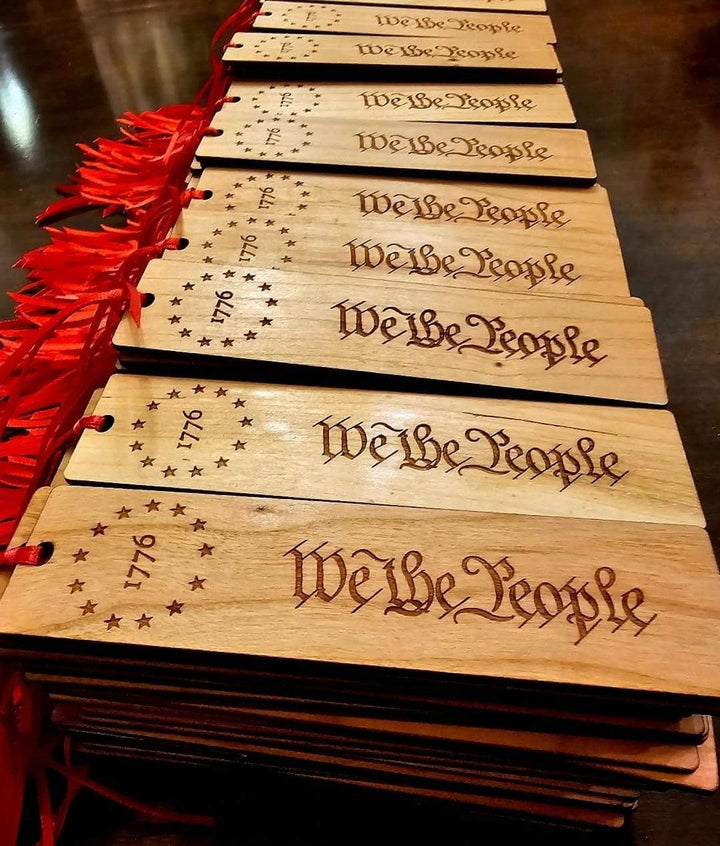 We the People
We the People
1776 We the People
1776 We the People
1776 We the People
1776 We the People
1776 We the People
1776 We the People
1776 We the People